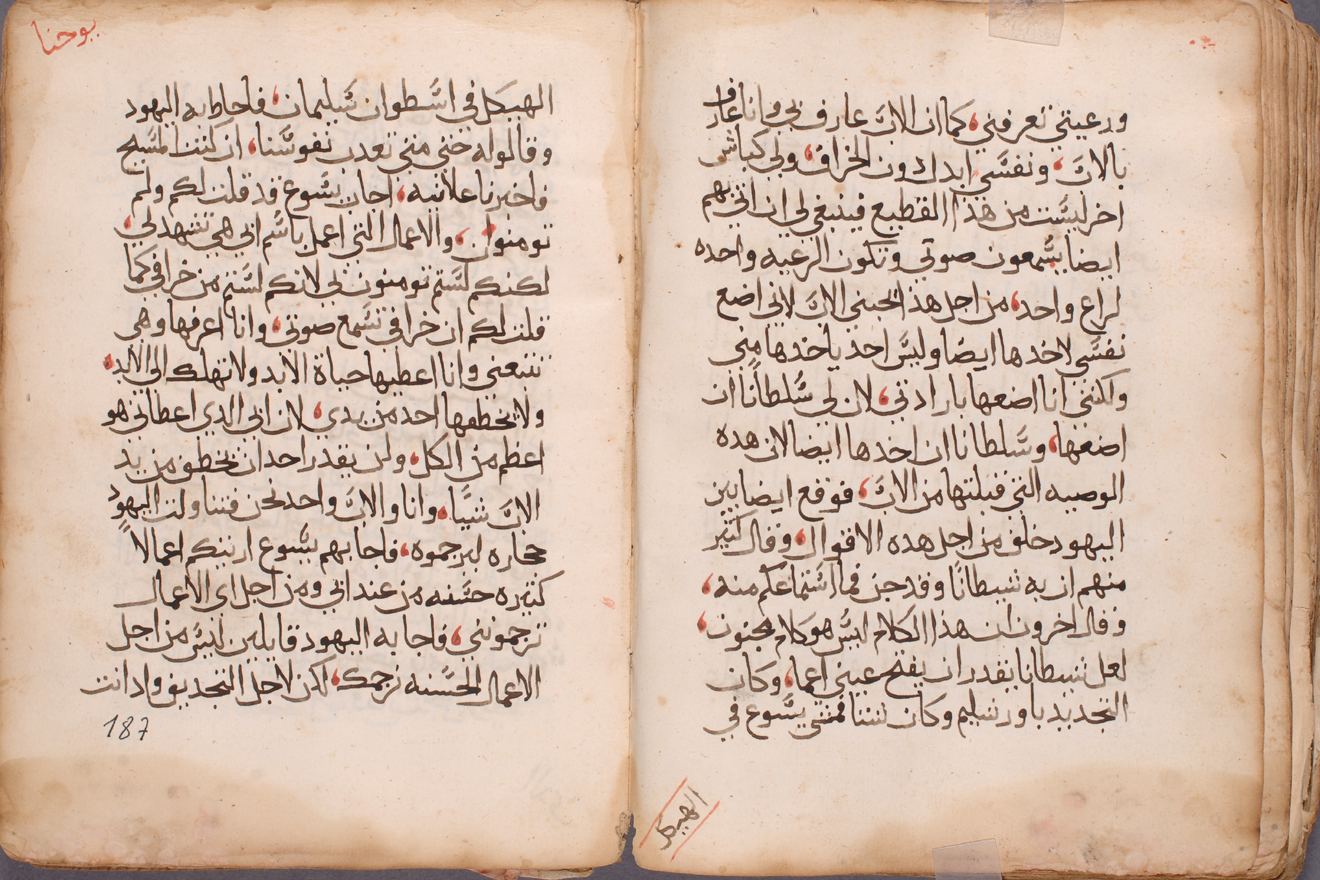 ورعيتي تعرفني، كما ان الاب عارف بي وانا عارف
بالاب، ونفسي ابدل دون الخراف، ولي كباش
اخر ليست من هذا القطيع فينبغي لي ان اتي بهم
ايضا يسمعون صوتي وتكون الرعيه واحده
لراع واحد، من اجل هذا يحبني الاب لاني اضع
نفسي لاخدها ايضا وليس احد ياخدها مني
ولكنني انا اضعها بارادتي، لان لي سلطانا ان
اضعها، وسلطانا ان اخدها ايضا لان هده
الوصيه التي قبلتها من الاب، فوقع ايضا بين
اليهود خلف من اجل هده الاقوال، وقال كثير
منهم ان به شيطانا وقد جن فما استماعكم منه،
وقال اخرون ان هذا الكلام ليس هو كلام مجنون،
لعل شيطانا يقدر ان يفتح عيني اعما، وكان
التجديد باورشليم وكان شتا فمشي يسوع في
الهيكل
يوحنا
الهيكل في اسطوان سليمان، فاحاط به اليهود
وقالو له حتي متي تعدب نفوسنا، ان كنت المسيح
فاخبرنا علانيه، اجاب يسوع قد قلت لكم ولم
تومنوا، والاعمال التي اعمل باسم ابي هي تشهد لي،
لكنكم لستم تومنون بي لانكم لستم من خرافي كما
قلت لكم ان خرافي تسمع صوتي، وانا اعرفها وهي
تتبعني وانا اعطيها حياة الابد ولا تهلك الي الابد،
ولا يخطفها احد من يدي، لان ابي الدي اعطاني هو
اعظم من الكل، ولن يقدر احد ان يخطف من يد
الاب شيا، وانا والاب واحد نحن فتناولت اليهود
حجاره ليرجموه، فاجابهم يسوع اريتكم اعمالا
كثيره حسنه من عند ابي ومن اجل اي الاعمال
ترجموني، فاجابه اليهود قايلين ليس من اجل
الاعمال الحسنه نرجمك، لكن لاجل التجديف واد انت
187